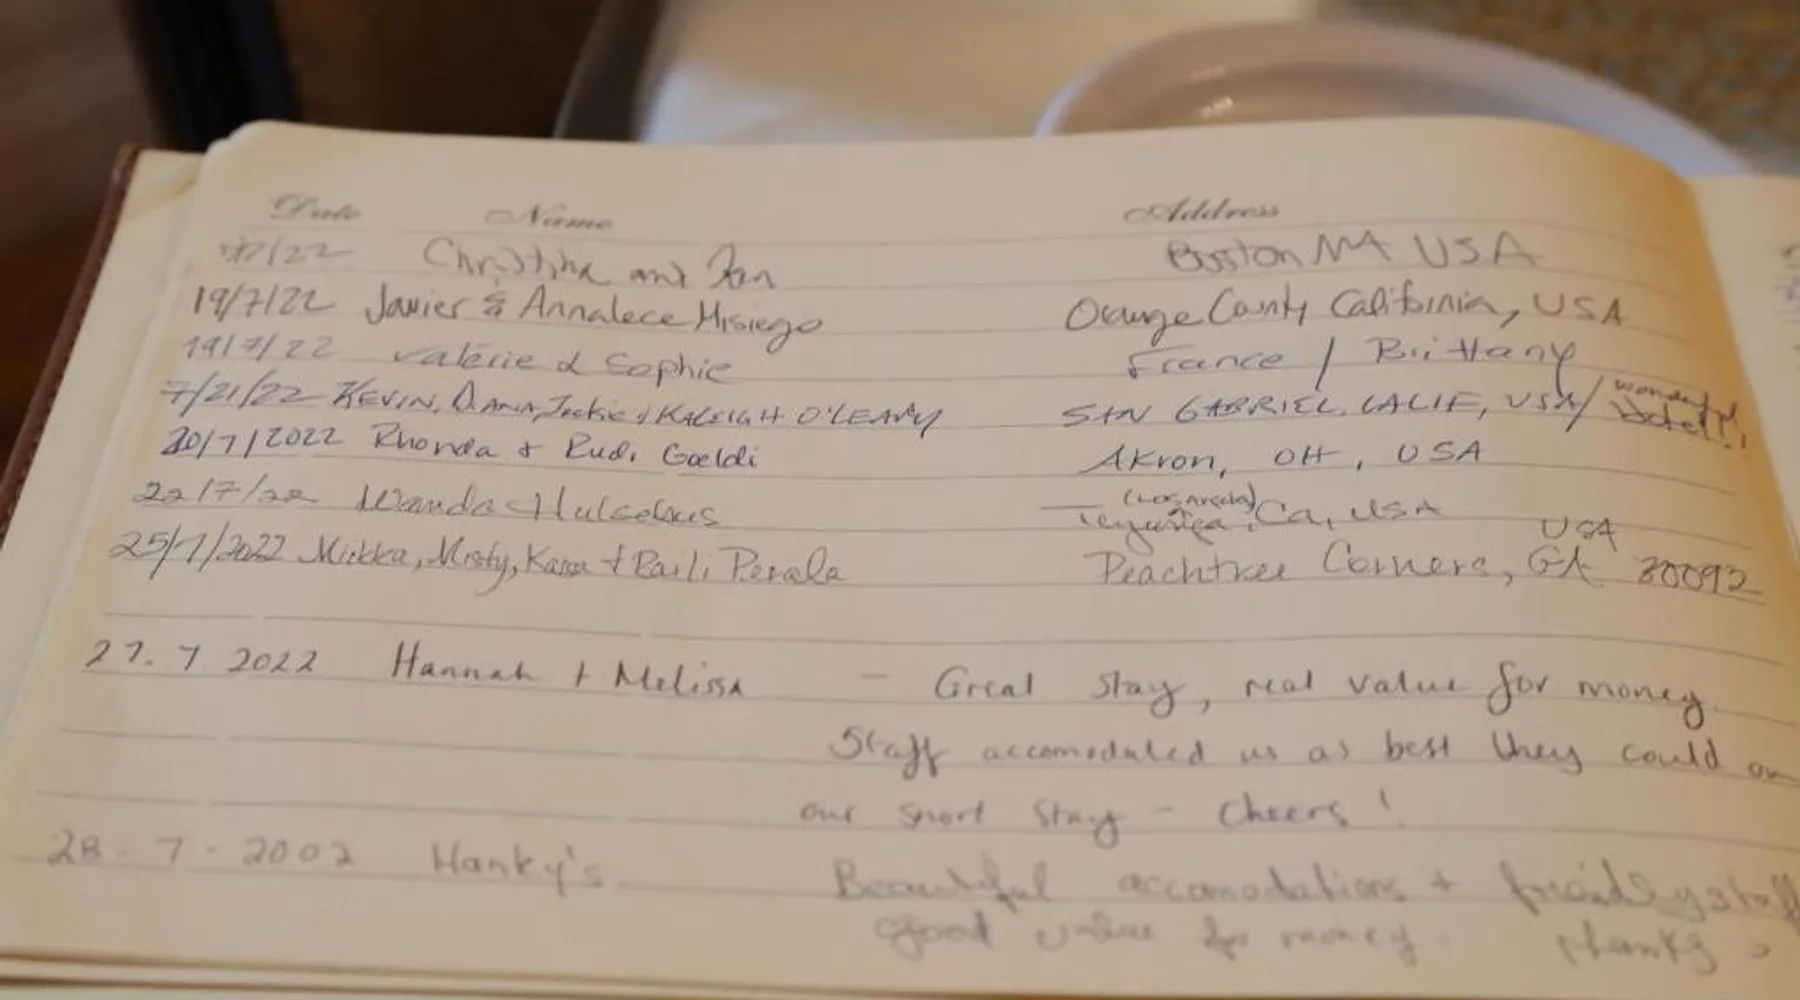 Date Name Address
/7/22 Christina and Boston MA USA
19/7/22 Javier & Annalece Misiego Orange County California, USA
19/7/22 Valérie & Sophie France / Brittany
7/21/22 KEVIN, DIANA, Jackie & KALEIGH O'LEARY SAN GABRIEL, CALIF, USA/ wonderful hotel!!
20/7/2022 Rhonda + Rudi Goeldi Akron, OH, USA
22/7/22 Wanda Ca, USA
25/7/2022 Mikka, Misty, Kara + Raili Perala Peachtree Corners, GA 30092 USA
27.7.2022 Hannah + Melissa - Great stay, real value for money.
Staff accomodated us as best they could on
our short stay - Cheers!
28-7-2002 Hanky's Beautiful accomodations + friendly staff
good value for money. thanks